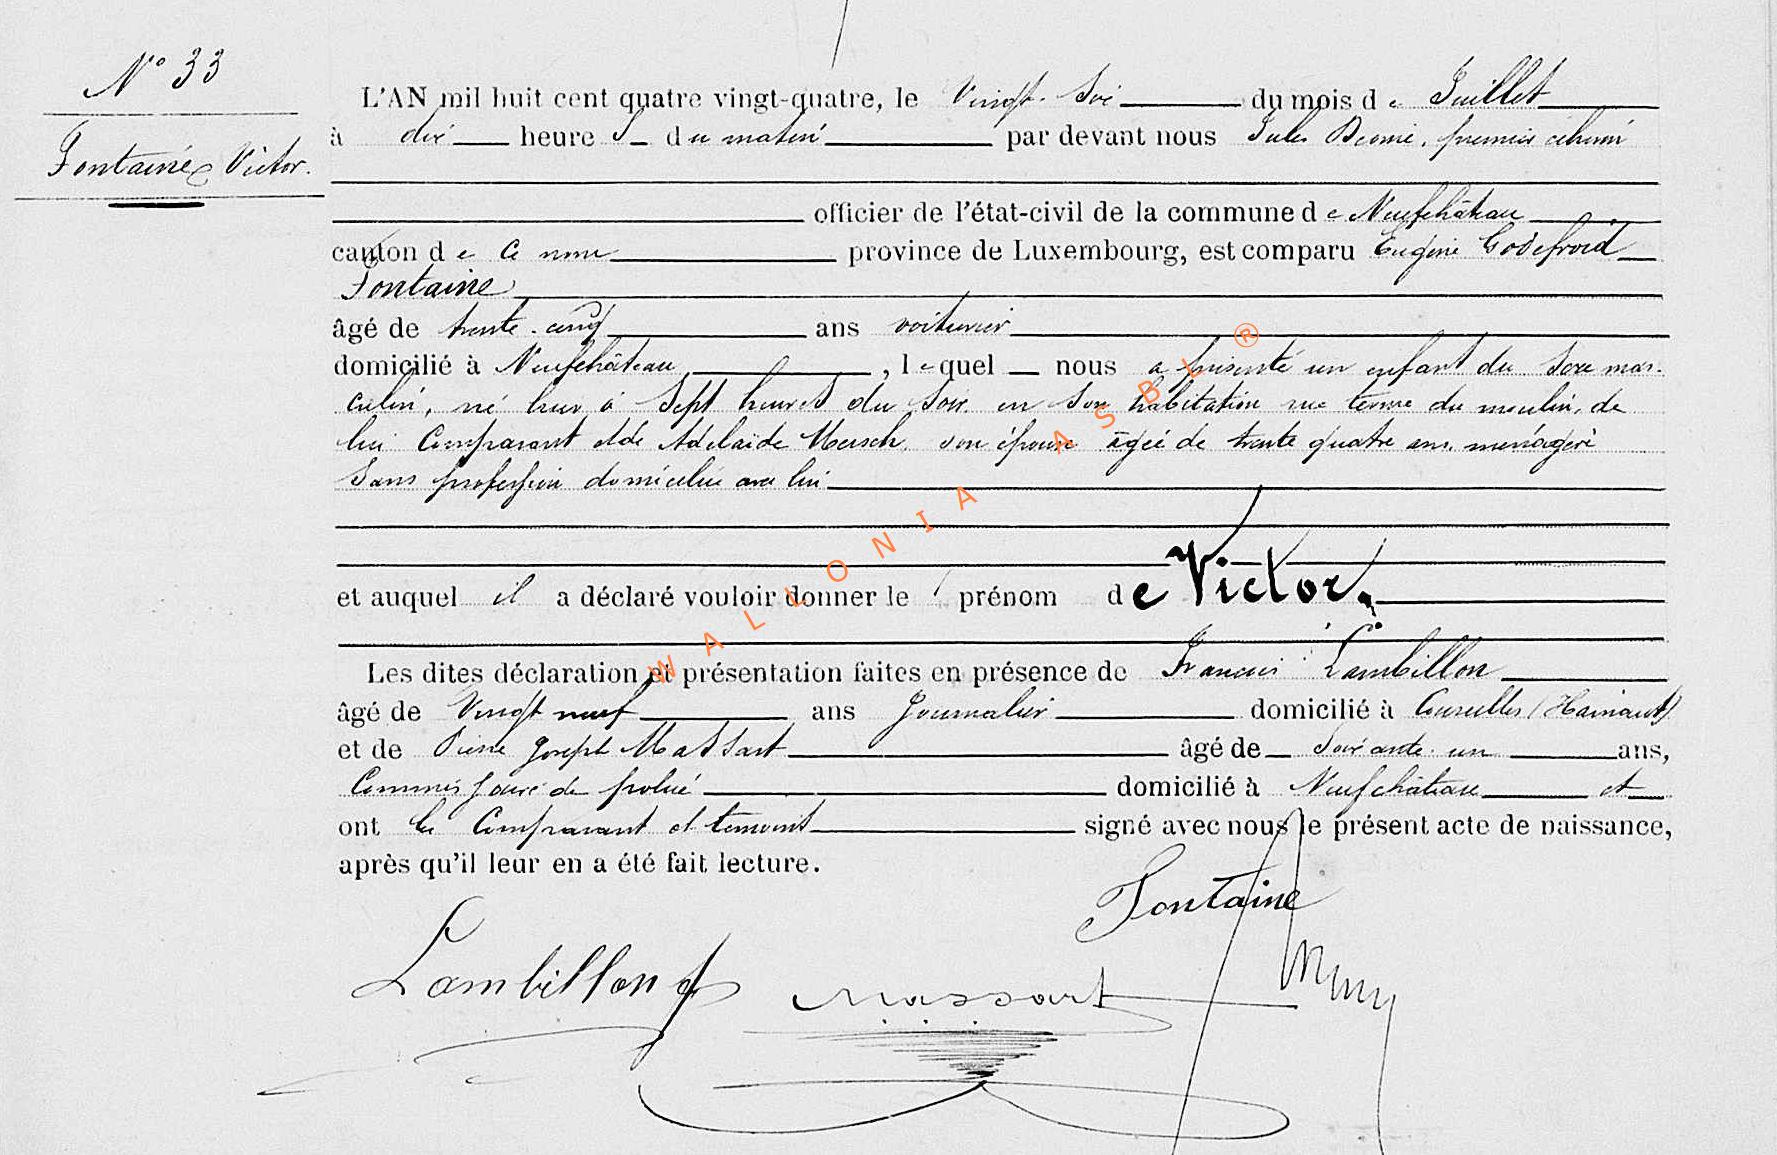 N° 33
Fontaine Victor.
L'AN mil huit cent quatre vingt-quatre, le Vingt-Six du mois de Juillet
à dix heures du matin par devant nous Jules premier échevin
officier de l'état-civil de la commune de Neufchâteau
canton de ce nom province de Luxembourg, est comparu Eugène Godefroid
Fontaine
âgé de trente-cinq ans voiturier
domicilié à Neufchâteau, lequel nous a présenté un enfant du Sexe mas-
culin, né hier, à Sept heures du Soir en Son habitation rue terme du moulin, de
lui Comparant et de Adélaïde Mersch, son épouse âgée de trente quatre ans, ménagère
Sans profession domiciliée avec lui
et auquel il a déclaré vouloir donner le prénom de Victor.
Les dites déclaration et présentation faites en présence de François Lambillon
âgé de Vingt neuf ans Journalier domicilié à Courcelles (Hainaut)
et de Pierre Joseph Massart âgé de Soixante-un ans,
Commissaire de police domicilié à Neufchâteau et
ont les Comparant et témoins signé avec nous le présent acte de naissance,
après qu'il leur en a été fait lecture.
Fontaine
Lambillon f
Massart
WALLONIA ASBL ®